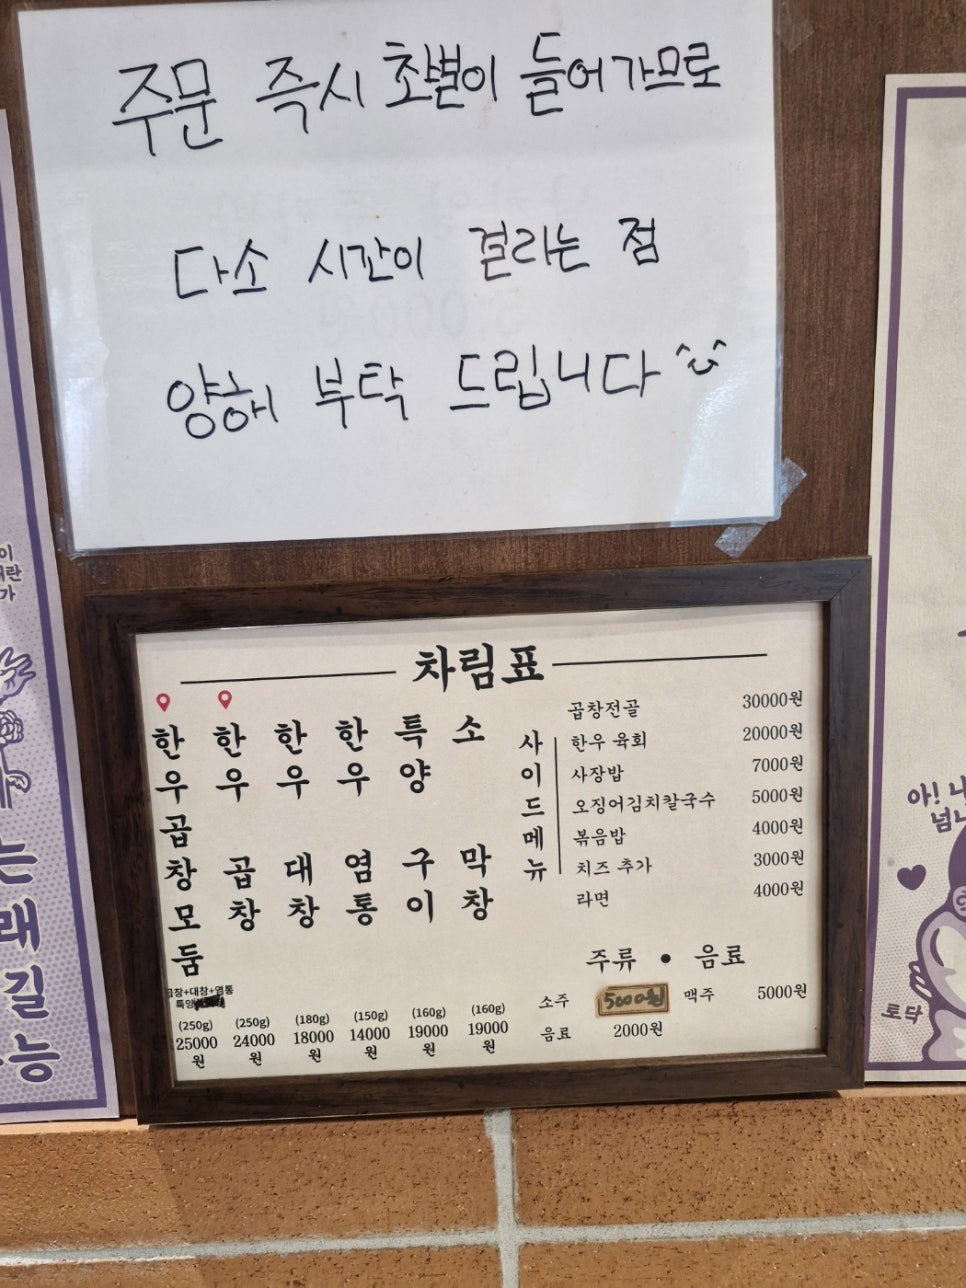 주문 즉시 초벌이 들어가므로
다소 시간이 걸리는 점
양해 부탁 드립니다
차림표
한우곱창모둠
곱창+대창+염통
특양
(250g)
25000
원
한우 곱창
(250g)
24000
원
한우 대창
(180g)
18000
원
한우 염통
(150g)
14000
원
특양 구이
(160g)
19000
원
소 막창
(160g)
19000
원
사이드메뉴
곱창전골 30000원
한우 육회 20000원
사장밥 7000원
오징어김치칼국수 5000원
볶음밥 4000원
치즈 추가 3000원
라면 4000원
주류 • 음료
소주 5000원 맥주 5000원
음료 2000원
이
가
는
매
길
능
아! 나
토닥